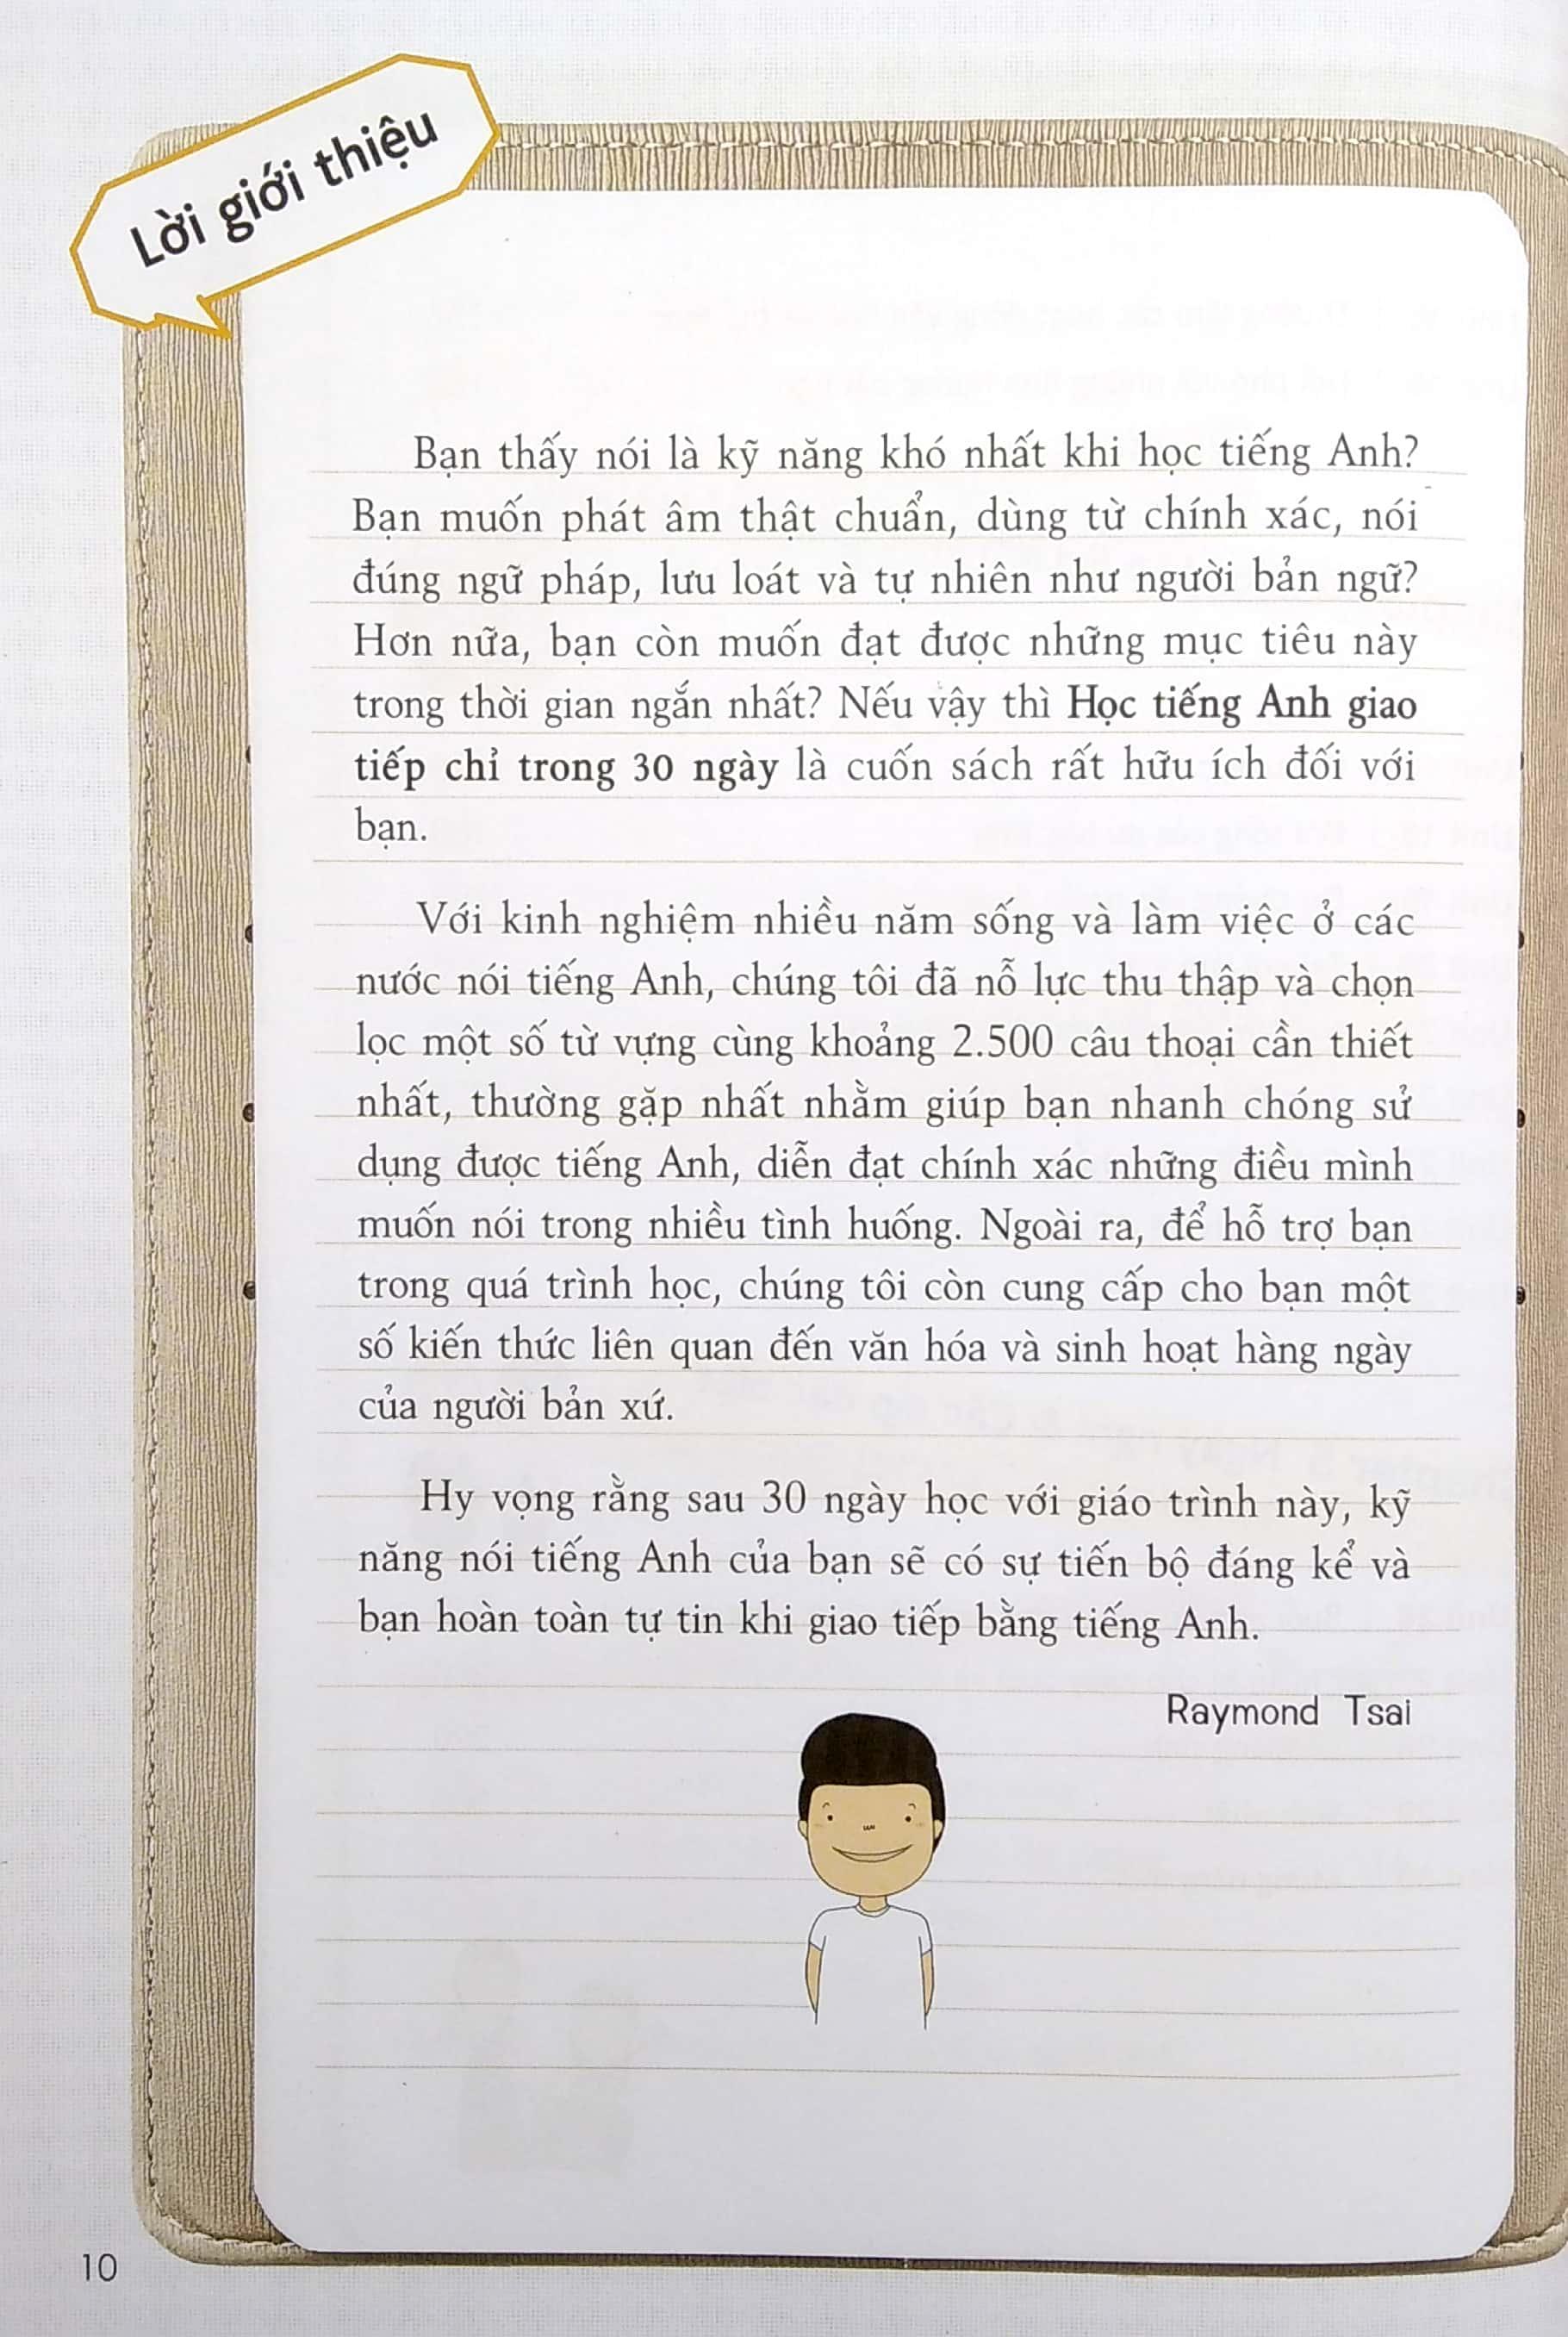 Lời giới thiệu
Bạn thấy nói là kỹ năng khó nhất khi học tiếng Anh?
Bạn muốn phát âm thật chuẩn, dùng từ chính xác, nói
đúng ngữ pháp, lưu loát và tự nhiên như người bản ngữ?
Hơn nữa, bạn còn muốn đạt được những mục tiêu này
trong thời gian ngắn nhất? Nếu vậy thì Học tiếng Anh giao
tiếp chỉ trong 30 ngày là cuốn sách rất hữu ích đối với
bạn.
Với kinh nghiệm nhiều năm sống và làm việc ở các
nước nói tiếng Anh, chúng tôi đã nỗ lực thu thập và chọn
lọc một số từ vựng cùng khoảng 2.500 câu thoại cần thiết
nhất, thường gặp nhất nhằm giúp bạn nhanh chóng sử
dụng được tiếng Anh, diễn đạt chính xác những điều mình
muốn nói trong nhiều tình huống. Ngoài ra, để hỗ trợ bạn
trong quá trình học, chúng tôi còn cung cấp cho bạn một
số kiến thức liên quan đến văn hóa và sinh hoạt hàng ngày
của người bản xứ.
Hy vọng rằng sau 30 ngày học với giáo trình này, kỹ
năng nói tiếng Anh của bạn sẽ có sự tiến bộ đáng kể và
bạn hoàn toàn tự tin khi giao tiếp bằng tiếng Anh.
Raymond Tsai
10